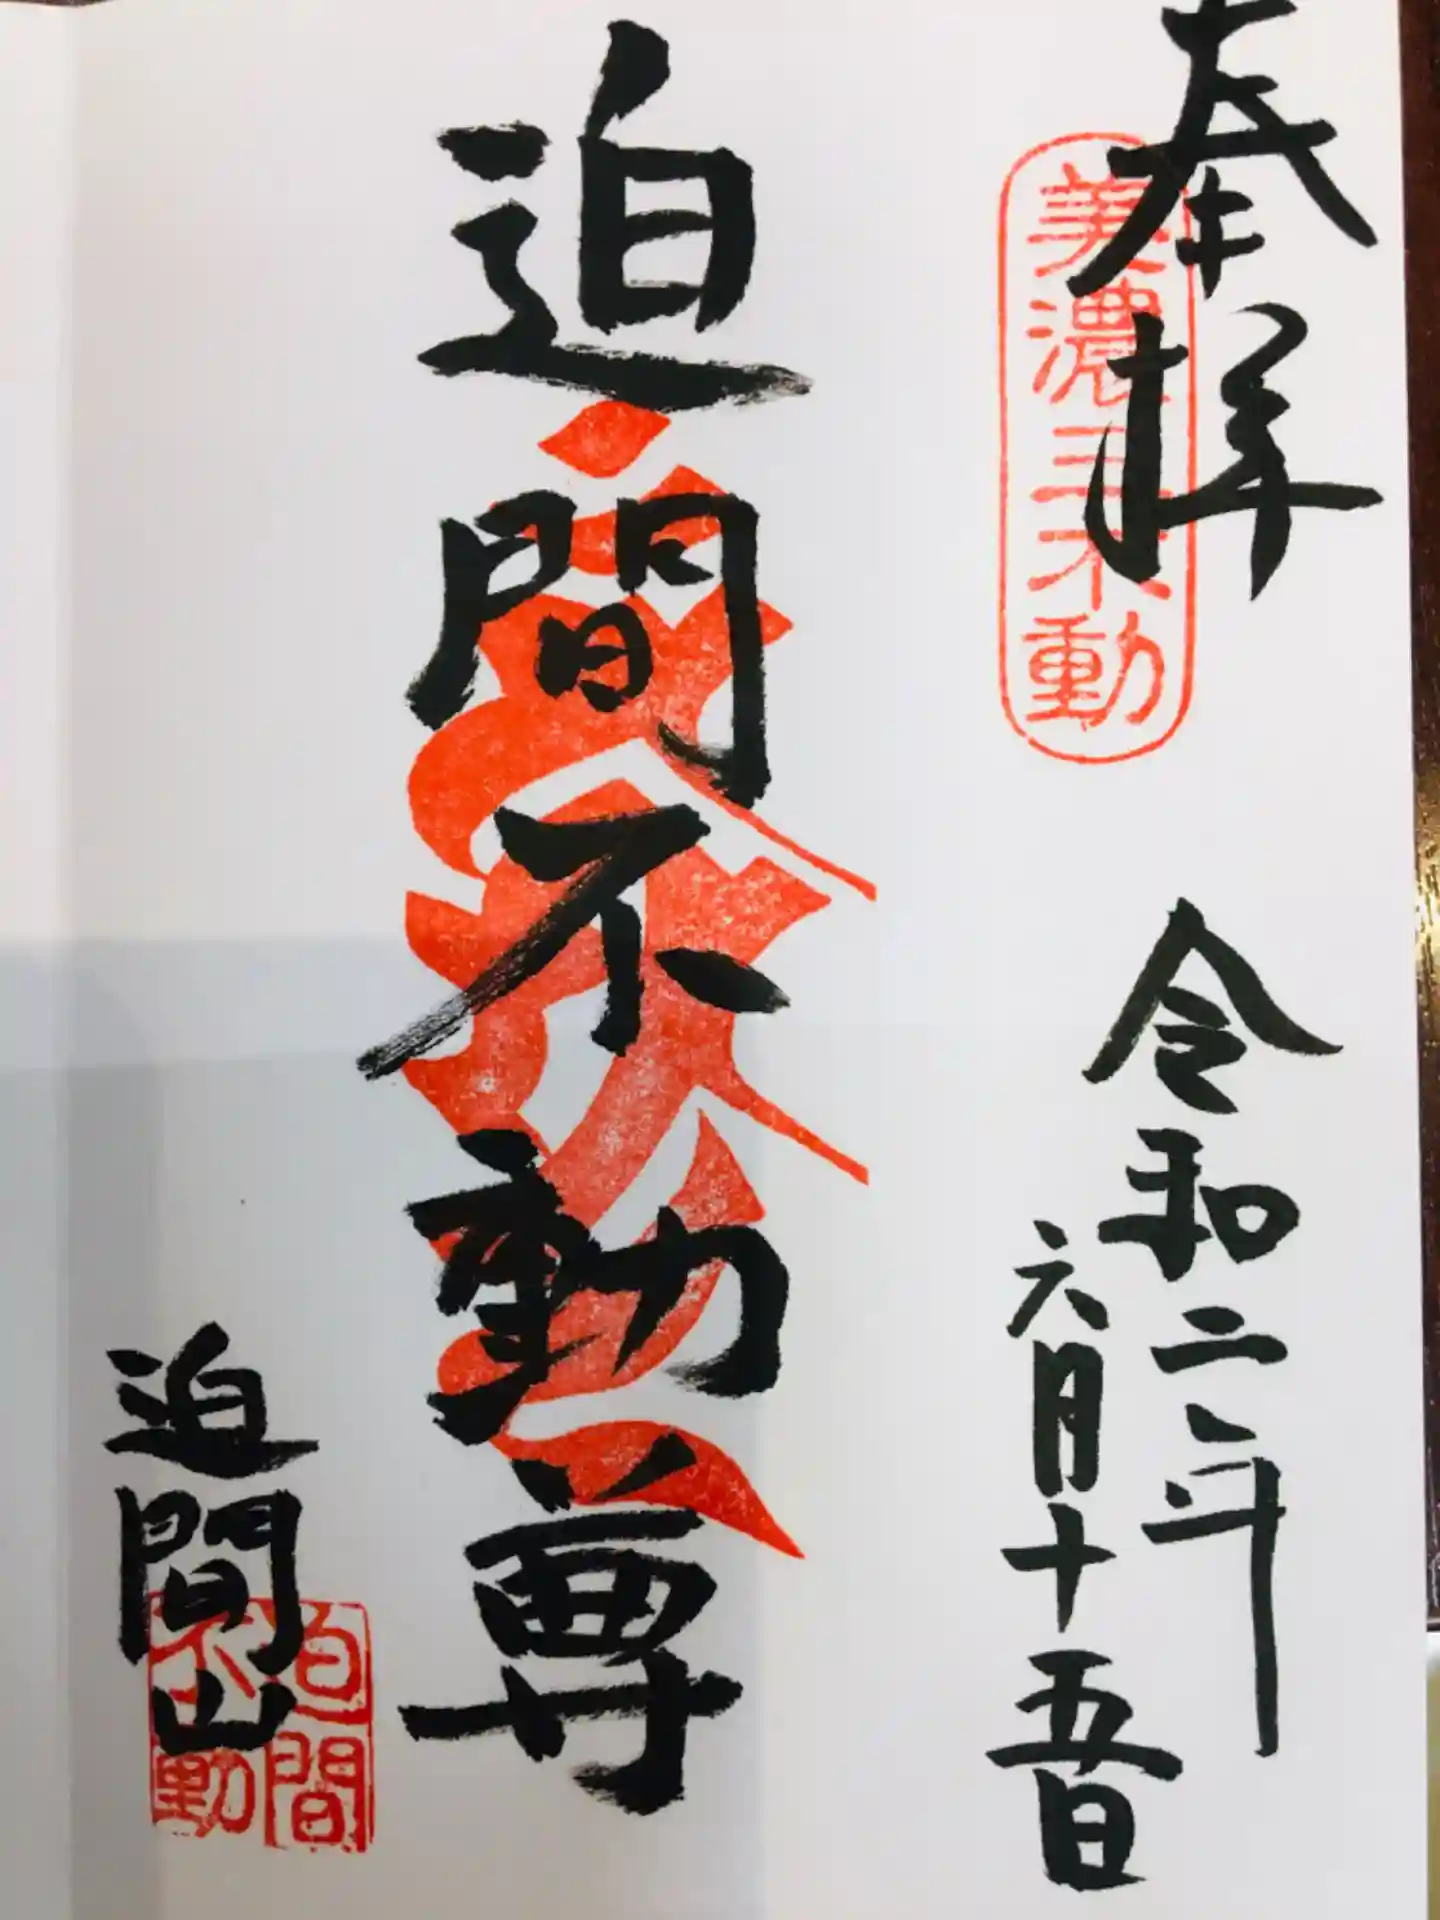 奉拝
美濃三不動
令和二年
六月十五日
迫間不動尊
迫間山
迫間不動